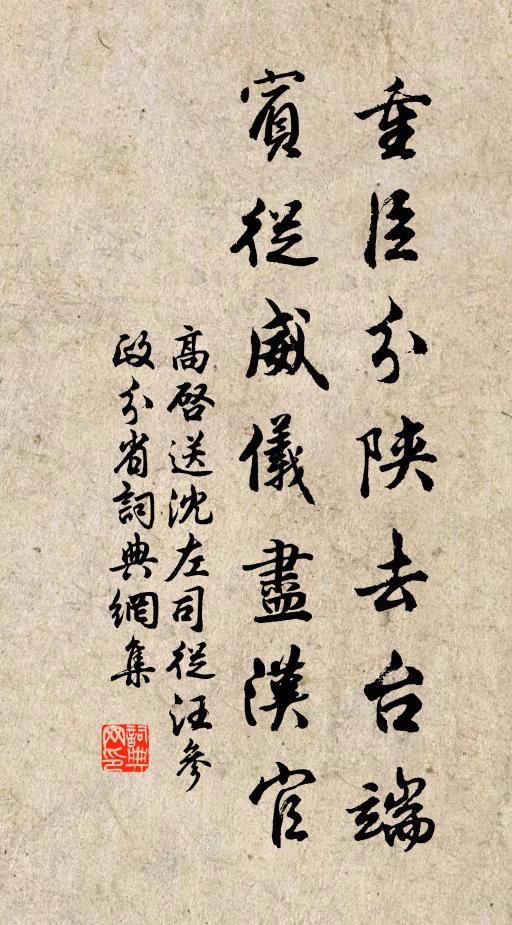 重臣分陝去台端
賓從威儀盡漢官
高啓送沈左司從汪參
政分省詞典網集
詞典网印